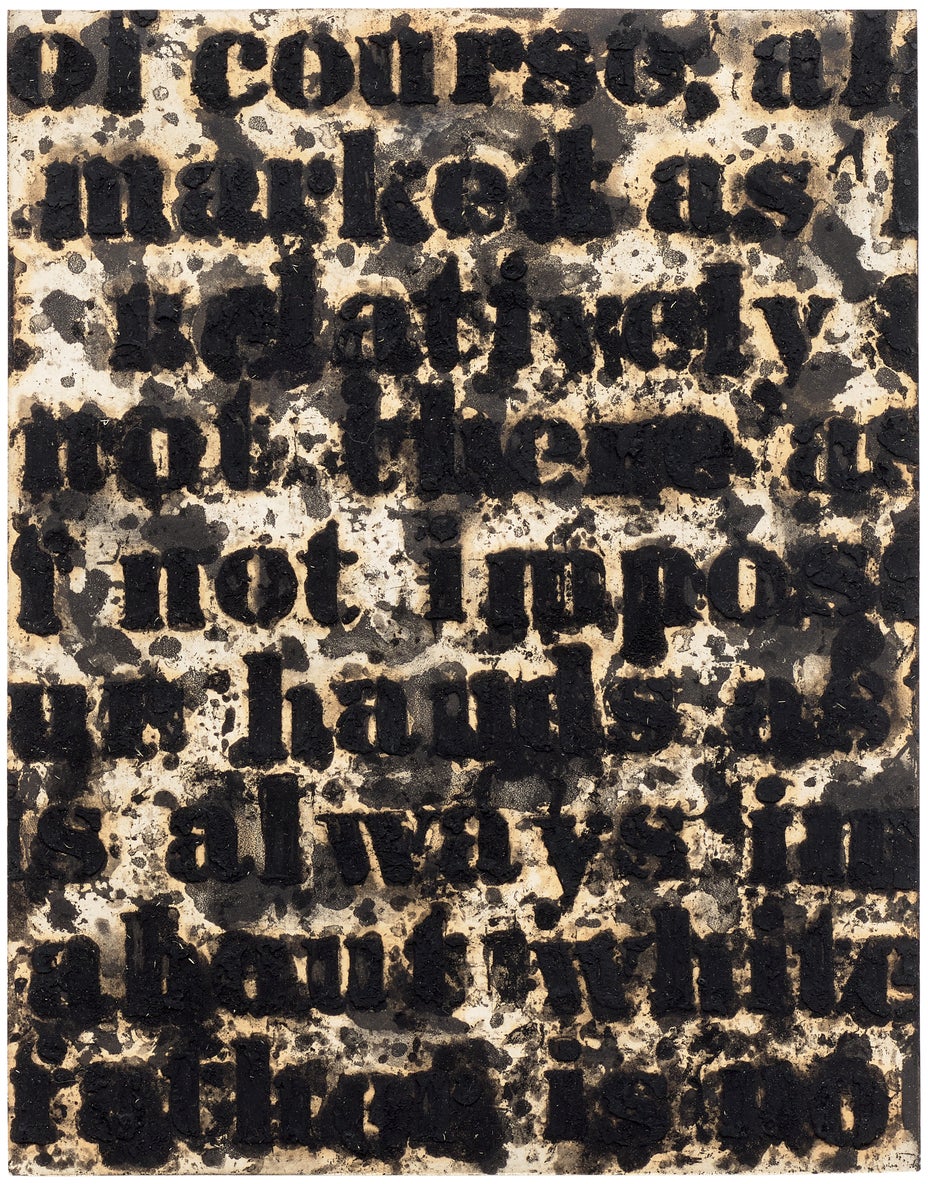 of course, al
marked as
relatively
not there a
not impos
ur hands as
is always in
about white
rather is no